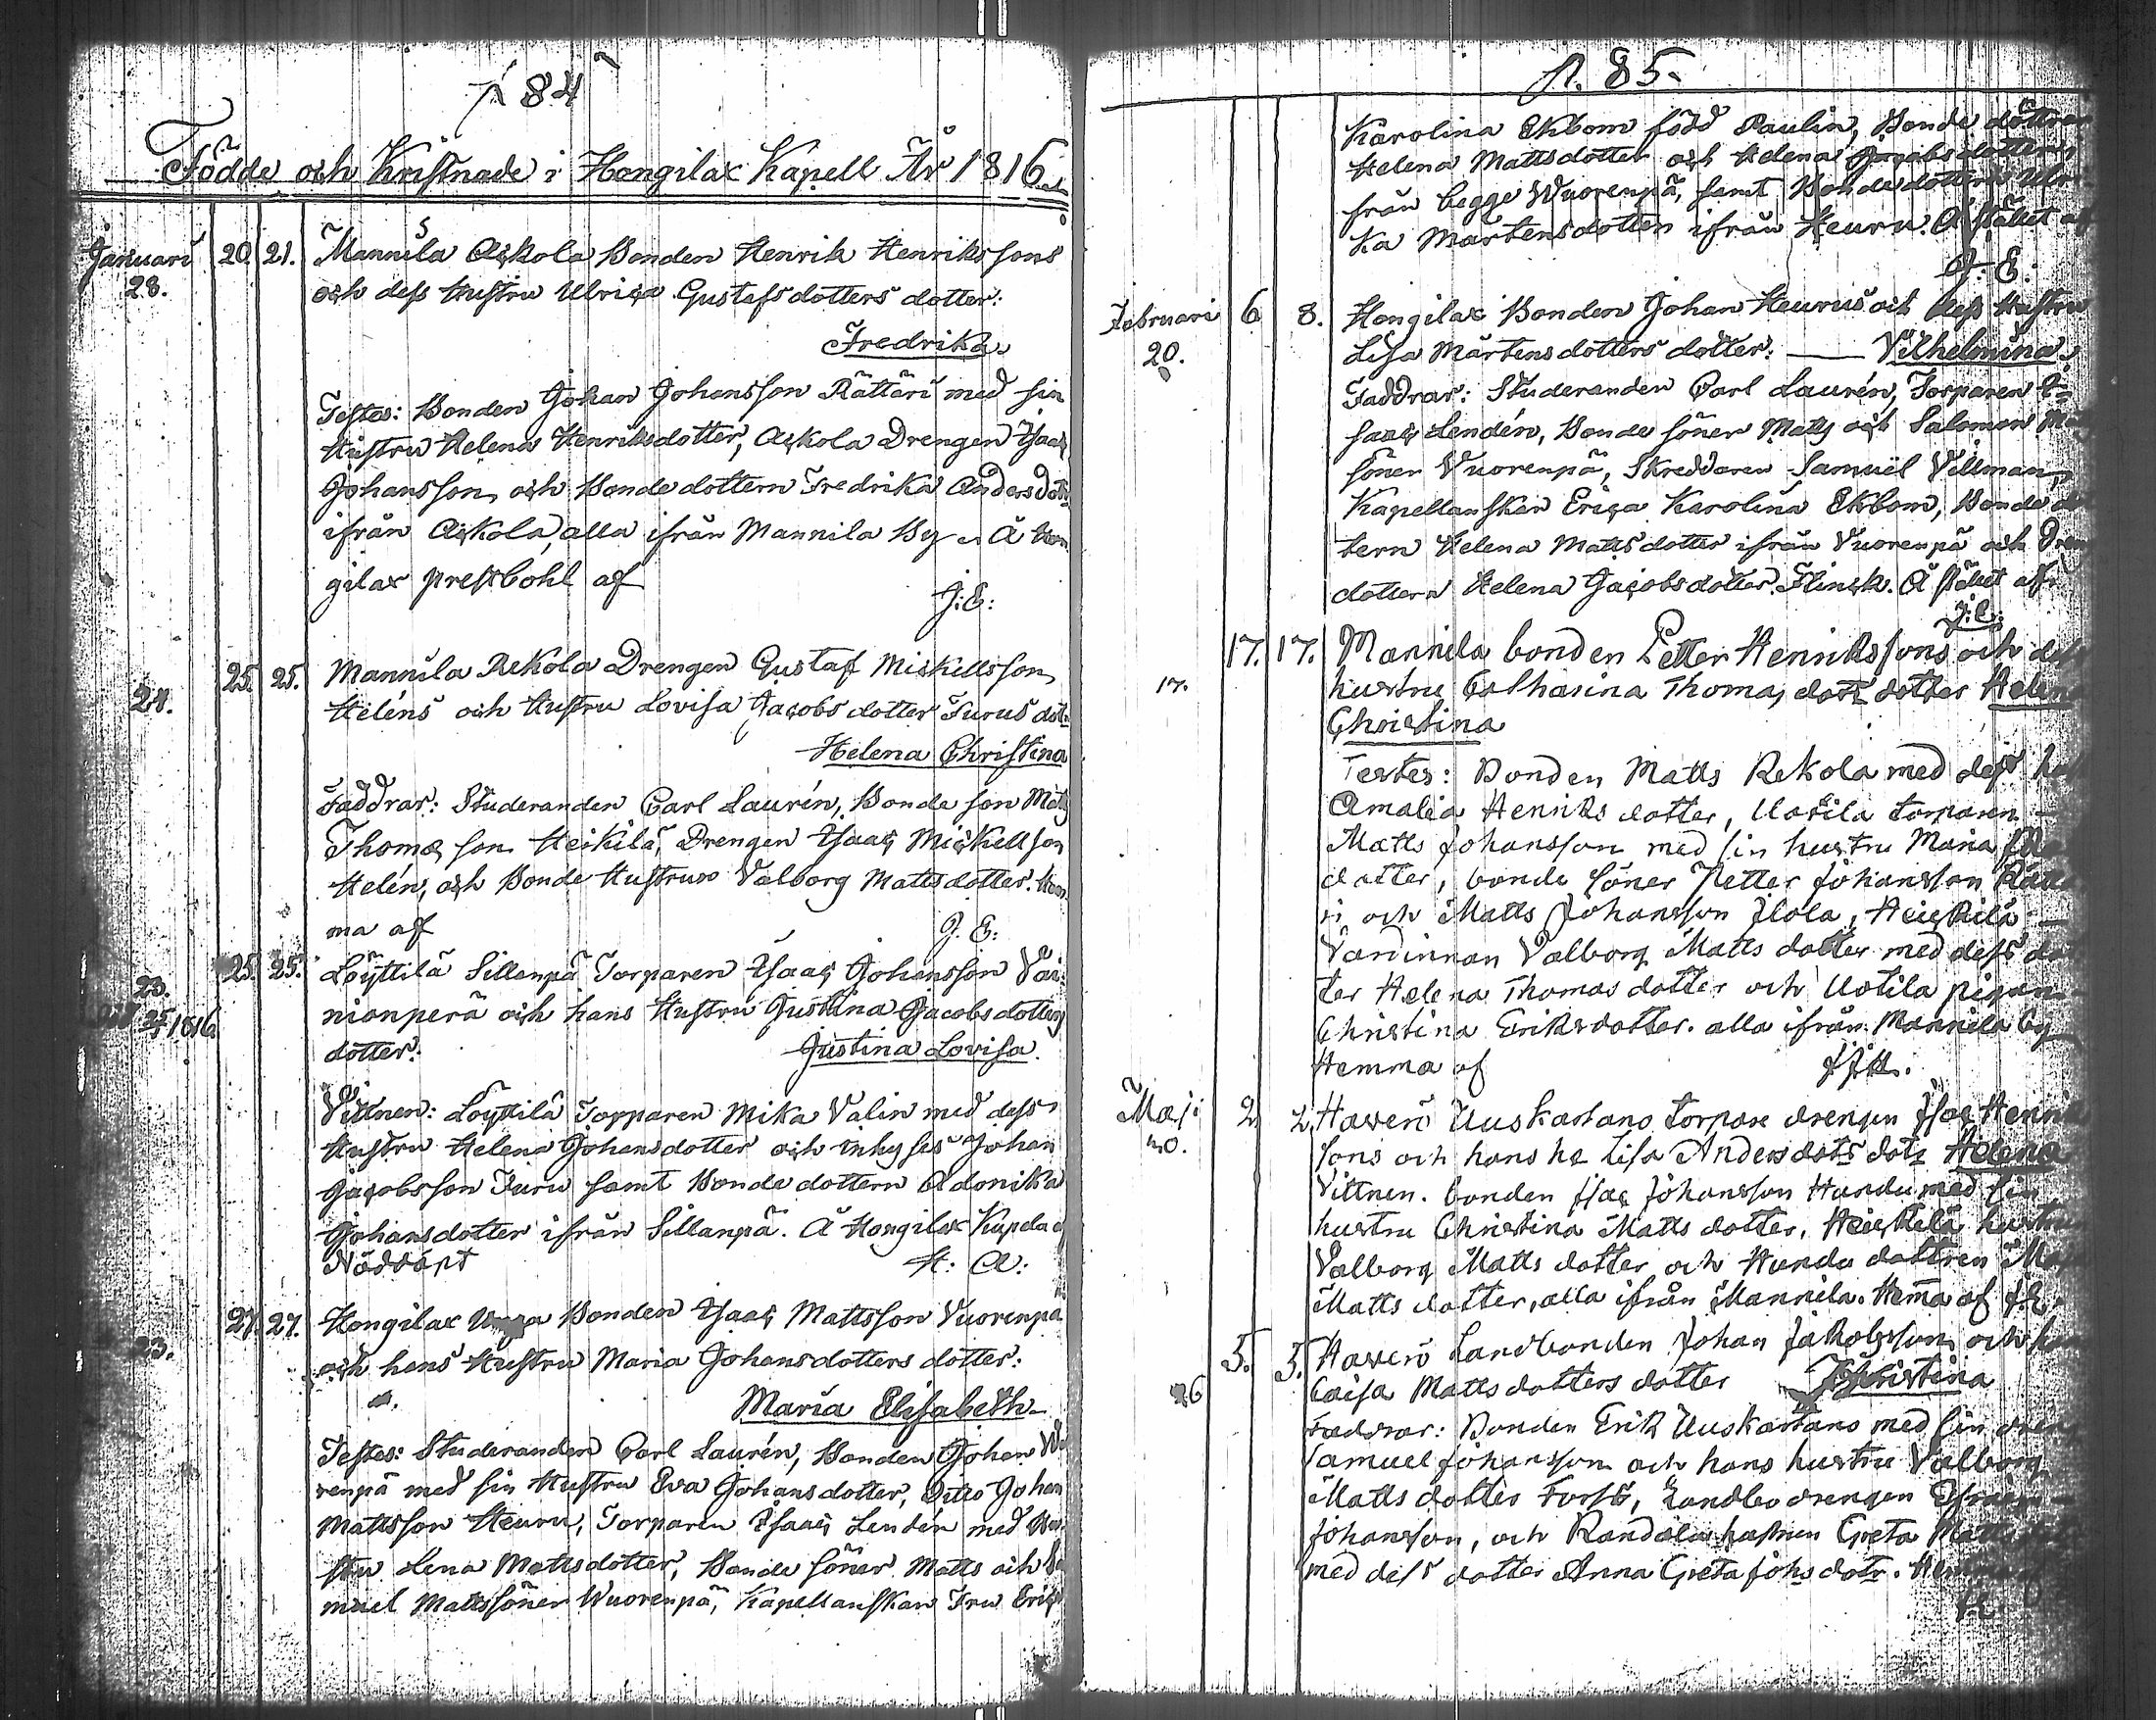 p. 84
Födde och Kristnade i Hongilax Kapell År 1816.
Januari 20. 21. Mannila Ackola Bonden Henrik Henrikssons
28. och dess Hustru Ulrica Gustafsdotters dotter:
Fredrika.
Testes: Bonden Johan Johansson Rättäri med sin
Hustru Helena Henriksdotter, Ackola Drengen Isaac
Johansson, och Bonde dottern Fredrika Andersdotr
ifrån Ackola, alla ifrån Mannila By. Å Hon
gilax prestbohl af
J: E:
25. 25. Mannila Rekola Drengen Gustaf Mickellsson
24. Heléns och Hustru Lovisa Jacobs dotter Turus dotr
Helena Christina
Faddrar: Studeranden Carl Laurén, Bonde son Matts
Thomæ son Heikilä, Drengen Isaac Mickellson
Helén, och Bonde Hustrun Valborg Mattsdotter. Hem
ma af J. E:
25. 25. Löyttilä Sillenpä Torparen Isaac Johansson Väi
23. nionperä och hans Hustru Justina Jacobsdotters
25/1 1816 dotter. Justina Lovisa.
Vittnen: Löyttilä Torparen Mika Valin med dess
Hustru Helena Johansdotter och inhyses Johan
Jacobsson Turu samt Bonde dottern Adonika
Johansdotter ifrån Sillanpä. Å Hongilax Kapela
Nöddöpt H: A:
27. 27. Hongilax Bonden Isaac Mattsson Vuorenpä
23. och hans Hustru Maria Johansdotters dotter:
Maria Elisabeth
Testes: Studeranden Carl Laurén, Bonden Johan Wo
renpä med sin Hustru Eva Johansdotter, Ditto Johan
Mattsson Heuru, Torparen Isaac Lendén med Hu
stru Lena Mattsdotter, Bonde söner Matts och Sa
muel Mattssöner Wuorenpä, Kapellanskan Fru Erica
p. 85.
Karolina Ekbom född Paulin, Bonde döttrar
Helena Mattsdotter och Helena Jacobsdotter
från begge Wuorenpä, samt Bondedottern Ulri
ka Mårtensdotter ifrån Heuru. Å stället af
J: E:
Februari 6 8. Hongilax Bonden Johan Heurus och dess Hustru
20. Lisa Mårtensdotters dotter: Vilhelmina.
Faddrar: Studeranden Carl Laurén, Torparen I=
saac Lendén, Bonde söner Matts och Salomon
söner Vuorenpä, Skreddaren Samuel Villman,
Kapellanskan Erica Karolina Ekbom, Bonde dot
tern Helena Mattsdotter ifrån Vuorenpä och
dottern Helena Jacobsdotter Flinck. Å stället af
J: E:
17. 17. Mannila bonden Petter Henrikssons och dess
17. hustru Catharina Thomas dotrs dotter Helena
Christina
Testes: Bonden Matts Rekola med dess
Amalia Henriks dotter, Uotila torparen
Matts Johansson med sin hustru Maria
dotter, bonde söner Petter Johansson Rättä
ri och Matts Johansson Ilola, Heickilä
Värdinnan Valborg Matts dotter med dess dot
ter Helena Thomas dotter och Uotila pigan
Christina Eriksdotter. alla ifrån Mannila by
Hemma af
Maji 2. 2. Haverö Uuskartano torpare drengen Isac Henrik
20. sons och hans he Lisa Anders dotrs dotr Helena
Vittnen. bonden Isac Johansson Hundu med sin
hustru Christina Matts dotter, Heickilä hustru
Valborg Matts dotter och Hundu dottren
Matts dotter, alla ifrån Mannila. Hemma af J. E.
5. 5. Haverö Landbonden Johan Jakobsson och
26 Caisa Mattsdotters dotter Christina
Faddrar: Bonden Erik Uuskartano med sin
Samuel Johansson och hans hustru Valborg
Matts dotter Forss, Landbo drengen Efraim
Johansson, och Randala hustrun Greta Matts
med dess dotter Anna Greta Johs dotr. Hemma